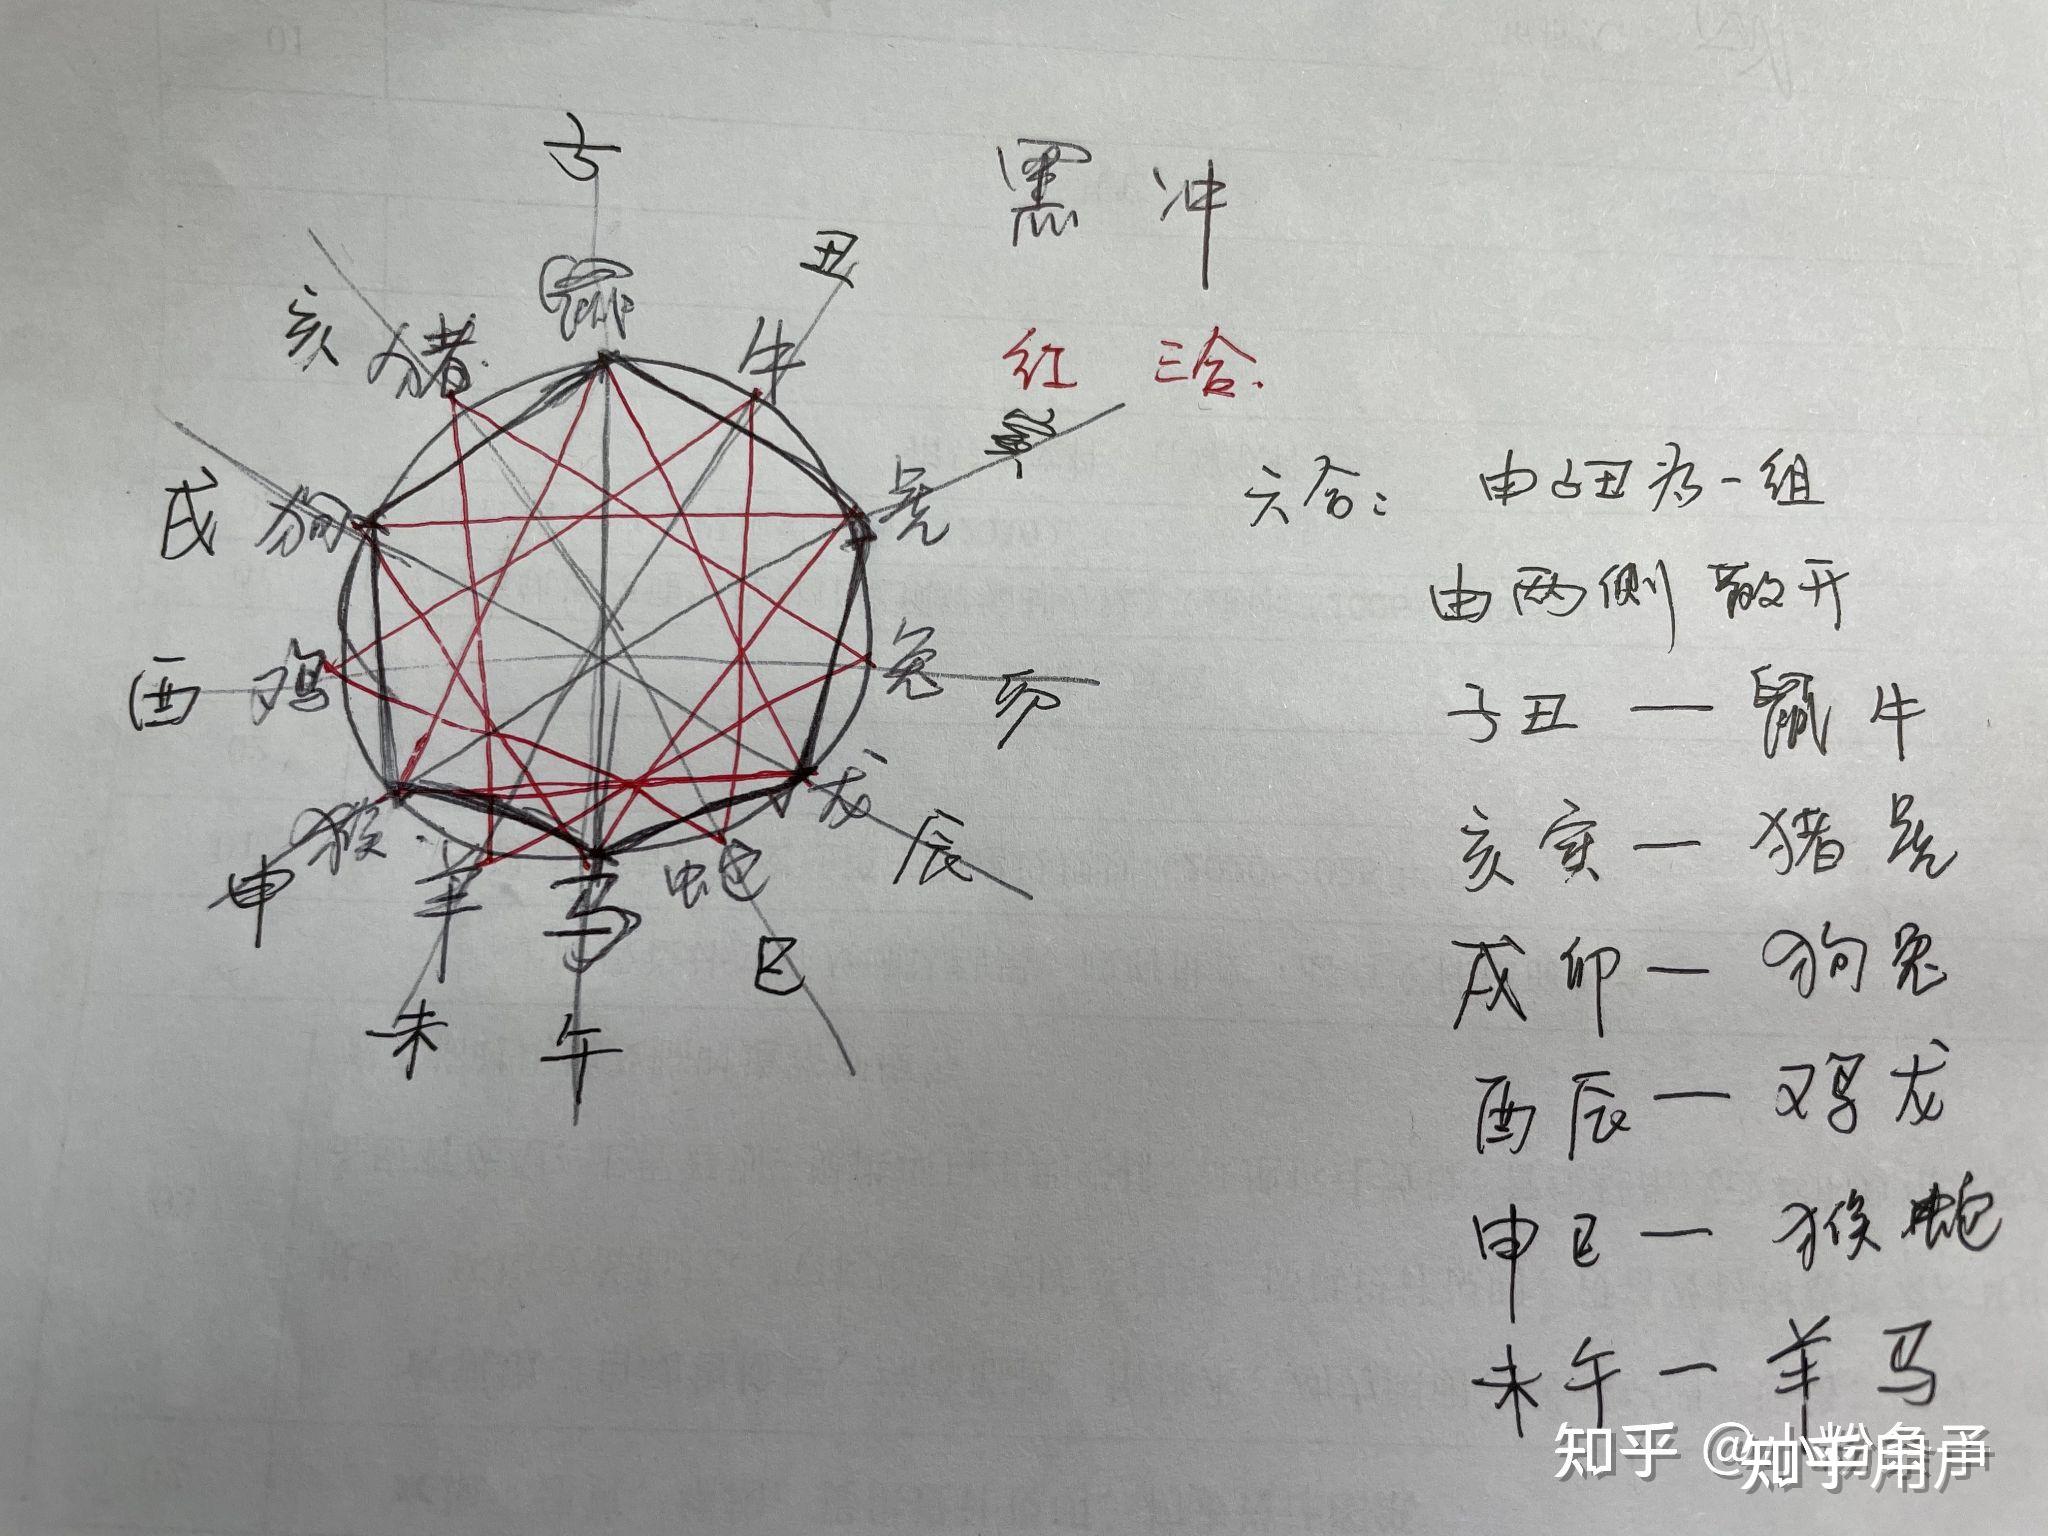 子
丑
鼠
亥 猪
牛
寅
戌 狗
虎
酉 鸡
兔 卯
申 猴
龙 辰
羊 马 蛇
未 午 巳
黑 冲
红 三合.
六合: 由子丑为一组
由两侧散开
子丑 — 鼠牛
亥寅 — 猪虎
戌卯 — 狗兔
酉辰 — 鸡龙
申巳 — 猴蛇
未午 — 羊马
知乎